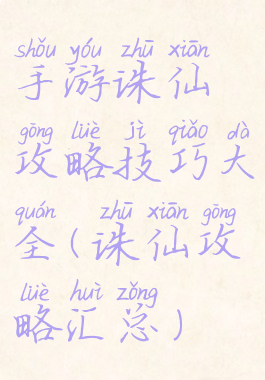 shǒu yóu zhū xiān
手游诛仙
gōng lüè jì qiǎo dà
攻略技巧大
quán zhū xiān gōng
全(诛仙攻
lüè huì zǒng
略汇总)